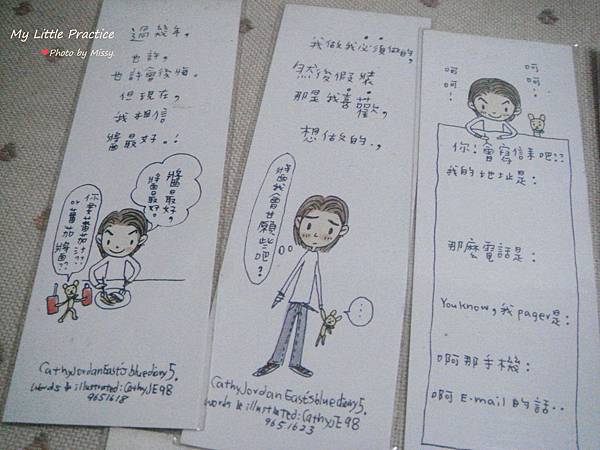 My Little Practice
Photo by Missy.
過幾年,
也許,
也許會後悔.
但現在,
我相信
醬最好.!
醬最好,
醬最好.
你要蕃茄汁??
or蕃茄將??
CathyJordanEast's bluediary5.
words & illustrated:CathyJE98
9651618
我做我必須做的,
然後假裝
那是我喜歡,
想做的.,
醬我會甘願些吧??
...
CathyJordanEast's bluediary5.
work & illustrated:CathyJE98
9651623
呵呵!
呵呵!
你!會寫信來吧!?
我的地址是:
那麼電話是:
You know,我pager是:
啊那手機:
啊E-mail的話..